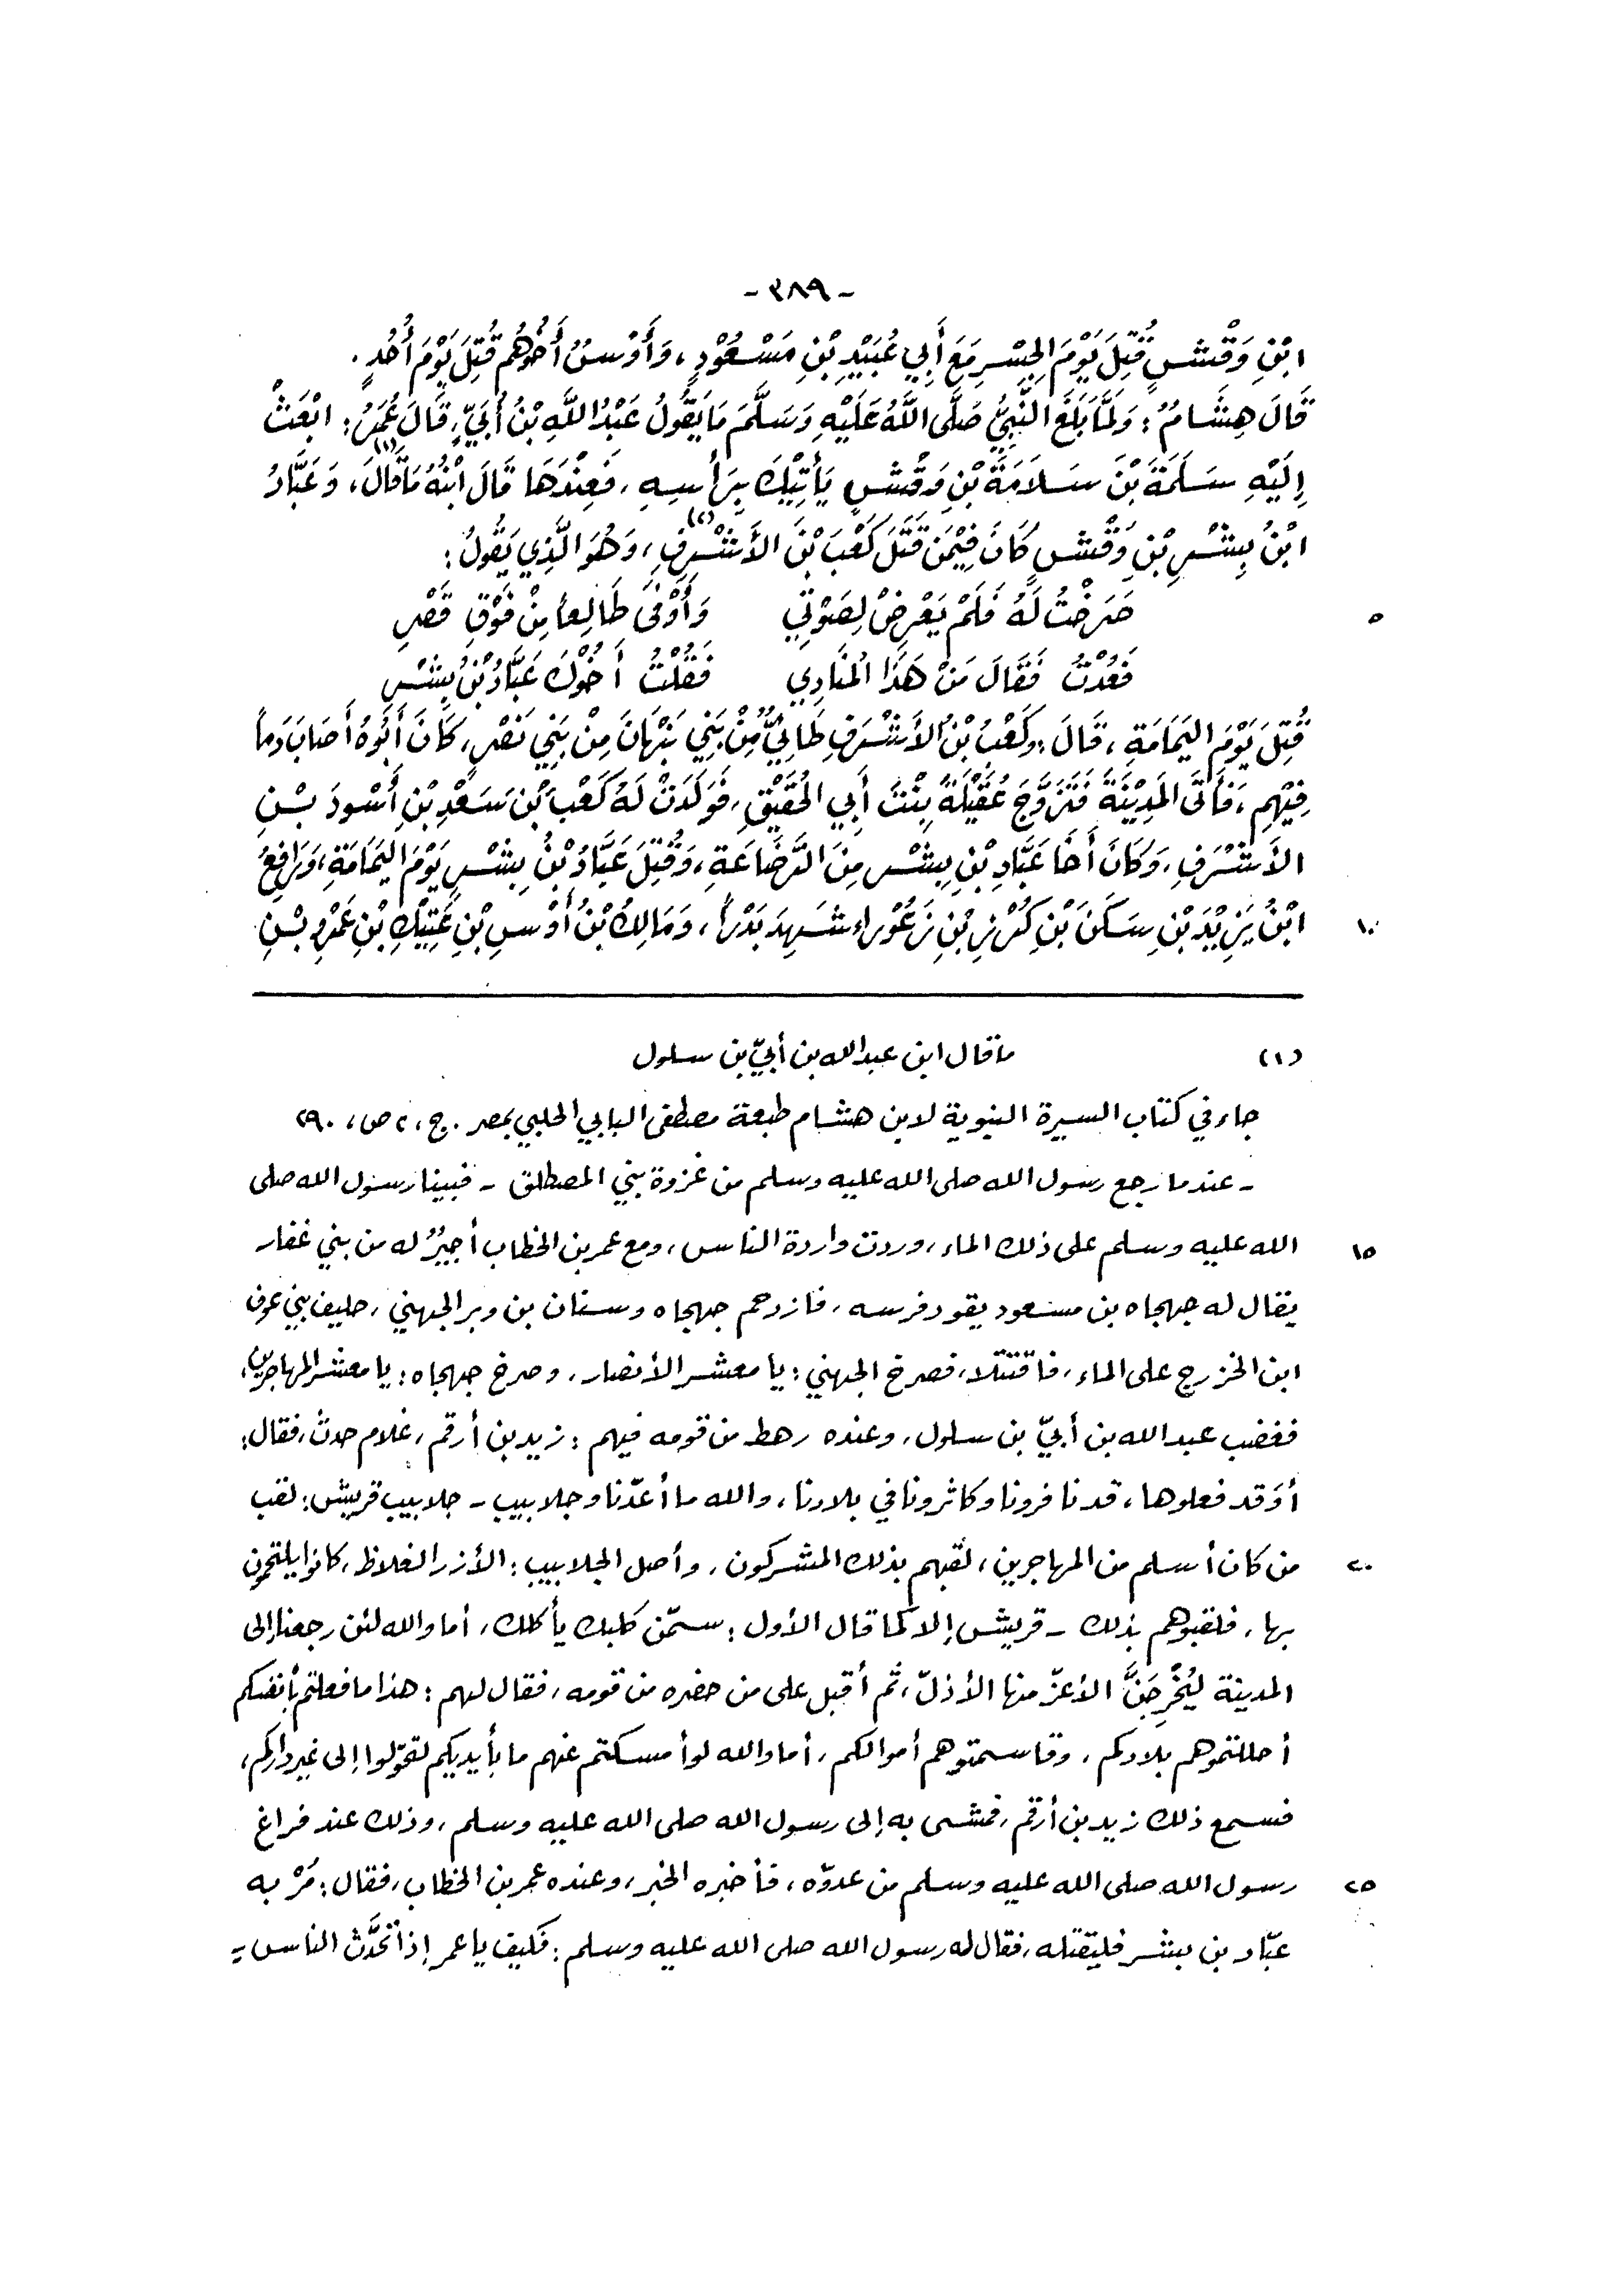 - ٣٨٩ -
ابْنِ وَقْشٍ قُتِلَ يَوْمَ الجِسْرِ مَعَ أَبِي عُبَيْدِ بْنِ مَسْعُوْدٍ، وَأَوْسُ أَخُوْهُم قُتِلَ يَوْمَ أُحُدٍ.
قَالَ هِشَامُ: وَلَمَّا بَلَغَ النَّبِيُّ صَلَّى اللَّهُ عَلَيْهِ وَسَلَّمَ مَا يَقُولُ عَبْدُ اللَّهِ بْنُ أُبَيٍّ، قَالَ عُمَرُ: ابْعَثْ
إِلَيْهِ سَلَمَةَ بْنَ سَلَامَةَ بْنِ وَقْشٍ يَأْتِيْكَ بِرَأسِهِ، فَعِنْدَهَا قَالَ ابْنُهُ مَا قَالَ(١)، وَعَبَّادُ
ابْنُ بِشْرِ بْنِ وَقْشٍ كَانَ فِيْمَن قَتَلَ كَعْبَ بْنَ الأَشْرَفِ(٢)، وَهُوَ الَّذِي يَقُولُ:
صَرَخْتُ لَهُ فَلَمْ يَعْرِضْ لِصَوْتِي وَأَوْفَى طَالِعاً مِنْ فَوْقِ قَصْرِ
٥
فَعُدْتُ فَقَالَ مَنْ هَذَا المُنَادِي فَقُلْتُ أَخُوْكَ عَبَّادُ بْنُ بِشْرِ
قُتِلَ يَوْمَ اليَمَامَةِ، قَالَ: وَكَعْبُ بْنُ الأَشْرَفِ طَائِيٌّ مِنْ بَنِي نَبْهَانَ مِنْ بَنِي نَصْرٍ، كَانَ أَبُوهُ أَصَابَ دَماً
فِيْهِم، فَأَتَى المَدِيْنَةَ فَتَزَوَّجَ عُقَيْلَةَ بِنْتَ أَبِي الحُقَيْقِ، فَوَلَدَتْ لَهُ كَعْبَ بْنَ سَعْدِ بْنِ أَسْوَدَ بْنِ
الأَشْرَفِ، وَكَانَ أَخَا عَبَّادِ بْنِ بِشْرٍ مِنَ الرَّضَاعَةِ، وَقُتِلَ عَبَّادُ بْنُ بِشْرٍ يَوْمَ اليَمَامَةِ، وَرَافِعُ
ابْنُ يَزِيْدَ بْنِ سَكَنَ بْنِ كُرْزِ بْنِ زَعُوْراء شَهِدَ بَدْراً، وَمَالِكُ بْنُ أَوْسِ بْنِ عَتِيْكِ بْنِ عَمْرِو بْنِ
١٠
(١) ما قال ابن عبد الله بن أبيّ بن سلول
جاء في كتاب السيرة النبوية لابن هشام طبعة مصطفى البابي الحلبي بمصر. ج، ٢ ص، ٢٩٠
- عندما رجع رسول الله صلى الله عليه وسلم من غزوة بني المصطلق - فبينا رسول الله صلى
الله عليه وسلم على ذلك الماء، وردت واردة الناس، ومع عمر بن الخطاب أجيرٌ له من بني غفار
١٥
يقال له جهجاه بن مسعود يقود فرسه، فازدحم جهجاه وسنان بن وبر الجهني، حليف بني عوف
ابن الخزرج على الماء، فاقتتلا، فصرخ الجهني: يا معشر الأنصار، وصرخ جهجاه: يا معشر المهاجرين،
فغضب عبد الله بن أبيّ بن سلول، وعنده رهط من قومه فيهم: زيد بن أرقم، غلام حدث، فقال:
أوَقد فعلوها، قد نافرونا وكاثرونا في بلادنا، والله ما أعدّنا وجلابيب - جلابيب قريش: لقب
من كان أسلم من المهاجرين، لقبهم بذلك المشركون، وأصل الجلابيب: الأزر الغلاظ، كانوا يلتحفون
٢٠
بها، فلقبوهم بذلك - قريش إلا كما قال الأول: سمّن كلبك يأكلك، أما والله لئن رجعنا إلى
المدينة ليُخْرِجَنَّ الأعزّ منها الأذلّ، ثم أقبل على من حضره من قومه، فقال لهم: هذا ما فعلتم بأنفسكم
أحللتموهم بلادكم، وقاسمتموهم أموالكم، أما والله لو أمسكتم عنهم ما بأيديكم لتحوّلوا إلى غير داركم،
فسمع ذلك زيد بن أرقم، فمشى به إلى رسول الله صلى الله عليه وسلم، وذلك عند فراغ
رسول الله صلى الله عليه وسلم من عدوّه، فأخبره الخبر، وعنده عمر بن الخطاب، فقال: مُرْ به
٢٥
عبّاد بن بشر فليقتله، فقال له رسول الله صلى الله عليه وسلم: فكيف يا عمر إذا تحدَّث الناس =